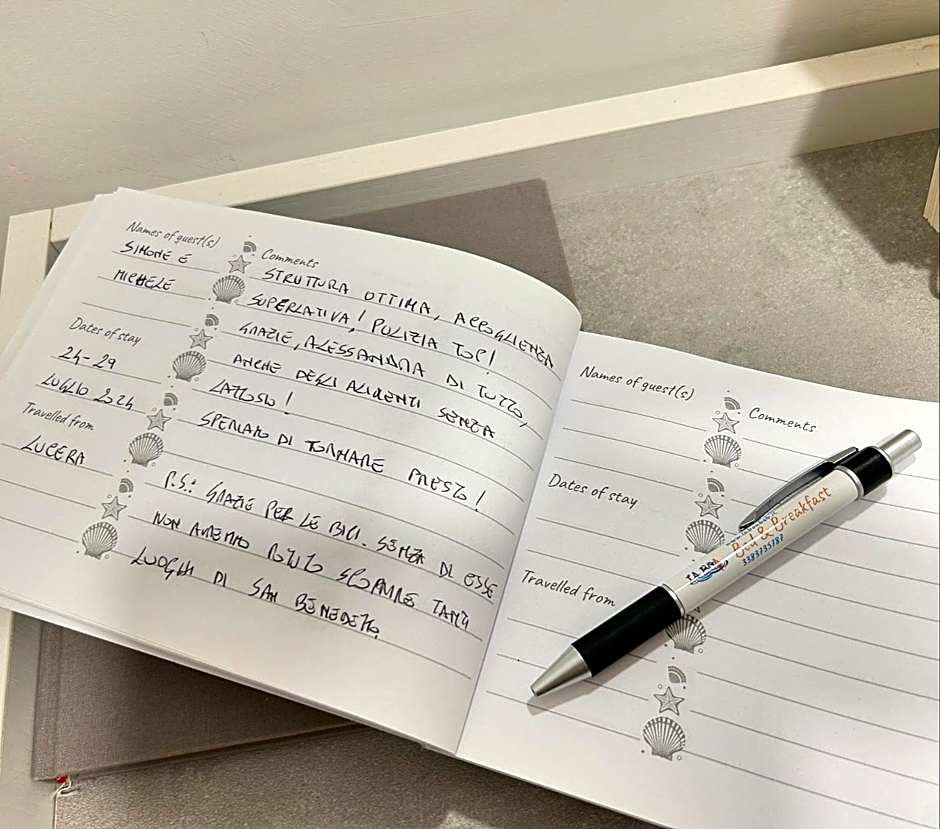 Names of guest(s)
SIMONE E
MICHELE
Dates of stay
24-29
LUGLIO 2024
Travelled from
LUCERA
Comments
STRUTTURA OTTIMA, ACCOGLIENZA
SUPERLATIVA! PULIZIA TOP!
GRAZIE, ALESSANDRA DI TUTTO,
ANCHE DEGLI ALIMENTI SENZA
LATTOSIO!
SPERIAMO DI TORNARE PRESTO!
P.S.: GRAZIE PER LE BICI. SENZA DI ESSE
NON AVREMMO POTUTO SCOPRIRE TANTI
LUOGHI DI SAN BENEDETTO.
Names of guest(s)
Comments
Dates of stay
Travelled from
Bed & Breakfast
3383735787